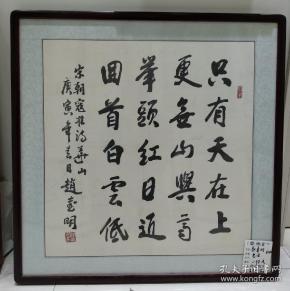 只有天在上
更無山與高
舉頭紅日近
回首白雲低
宋朝寇準詩華山
庚寅年春日趙書明
孔夫子旧书网